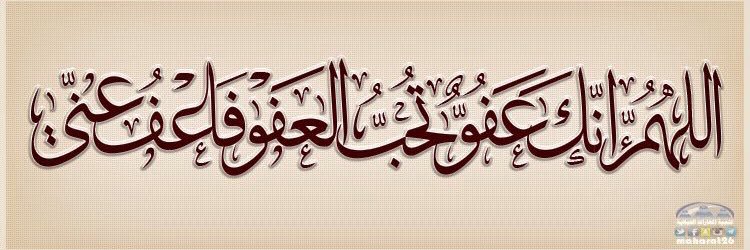 اللَّهُمَّ إِنَّكَ عَفُوٌّ تُحِبُّ العَفْوَ فَاعْفُ عَنِّي
maharat26